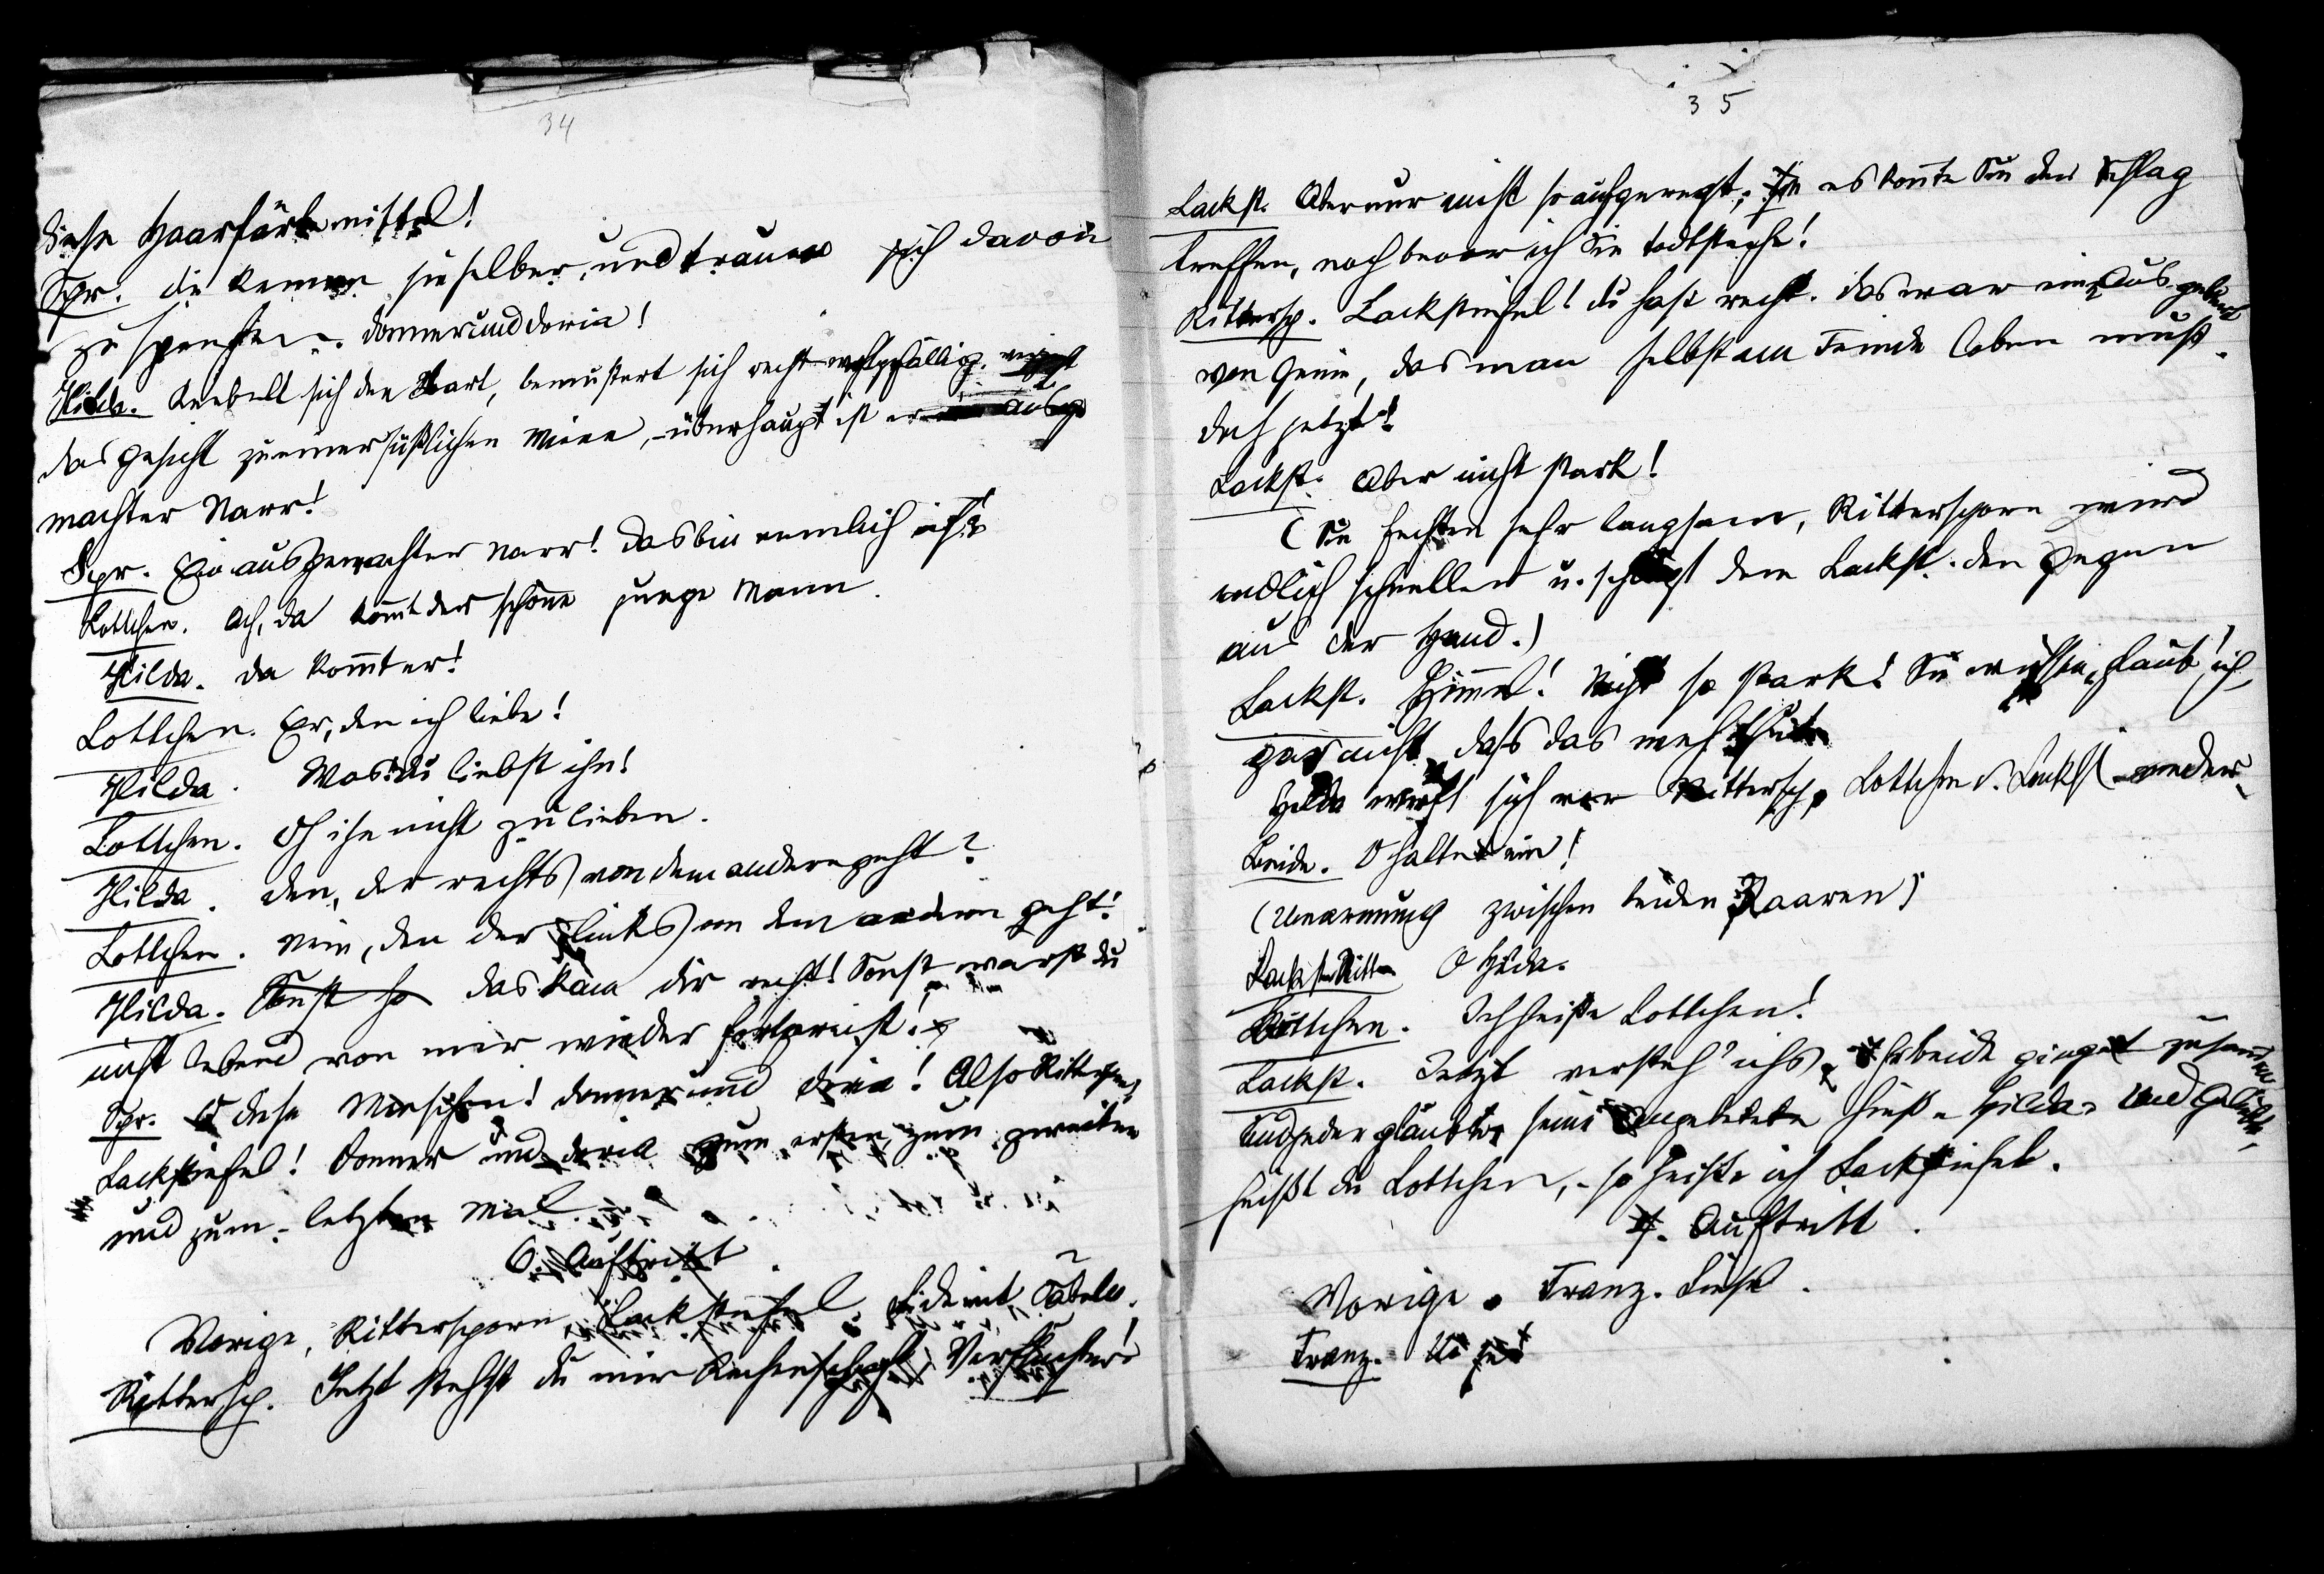 34
diese Haarfärbemittel!
Spr. die kennen sie selber, und trauen sich davon
zu sprechen. Donner und Doria!
Hilda. knebelt sich den Bart, bemustert sich recht wohlgefällig.
das Gesicht zu einer süßlichen Miene, – überhaupt ist er ausge
machter Narr!
Spr. Ein ausgemachter Narr! das bin nemlich ich!
Lottchen. Ach, da kommt der schöne junge Mann.
Hilda. da kommt er!
Lottchen. Er, den ich liebe!
Hilda. Was! du liebst ihn!
Lottchen. Oh ihn nicht zu lieben.
Hilda. den, der rechts von dem andern geht?
Lottchen. Nein, den der links von dem andern geht!
Hilda. Sonst so das kam dir recht! Sonst warst du
nicht lebend von mir wieder fortgereist!
Spr. diese Menschen! Donner und Doria! Also Rittersp.,
Lackstiefel! Donner und Doria zum ersten, zum zweiten
und zum – letzten Mal
6. Auftritt.
Vorige, Rittersporn, Lackstiefel. Beide mit Säbeln.
Rittersp. Jetzt stehst du mir Rechenschaft, Verfluchter!
35
Lackst. Aber nur nicht so aufgeregt; es könnte Sie der Schlag
treffen, noch bevor ich Sie todtsteche!
Rittersp. Lackstiefel! du hast recht. das war eine Ausgeburt
von Genie, das man selbst am Feinde loben muß.
doch jetzt!
Lackst. Aber nicht stark!
(Sie fechten sehr langsam, Rittersporn wird
endlich schneller u. schlägt dem Lackst. den Degen
aus der Hand.)
Lackst. Himmel! Nicht so stark! Sie wissen, glaub' ich,
gar nicht, dass das weh thut
Hilda wirft sich vor Rittersp., Lottchen v. Lackst. nieder
Beide. O haltet ein!
(Umarmung zwischen beiden Paaren)
Lackst. Ritter O Hilda.
Lottchen. Ich heiße Lottchen!
Lackst. Jetzt versteh' ichs, Ihr beide ginget zusammen
und jeder glaubte, seine Angebetete hieß Hilda. Und Geliebte,
heißt du Lottchen, – so heiße ich Lackstiefel.
7. Auftritt.
Vorige. Franz. Liesel.
Franz.